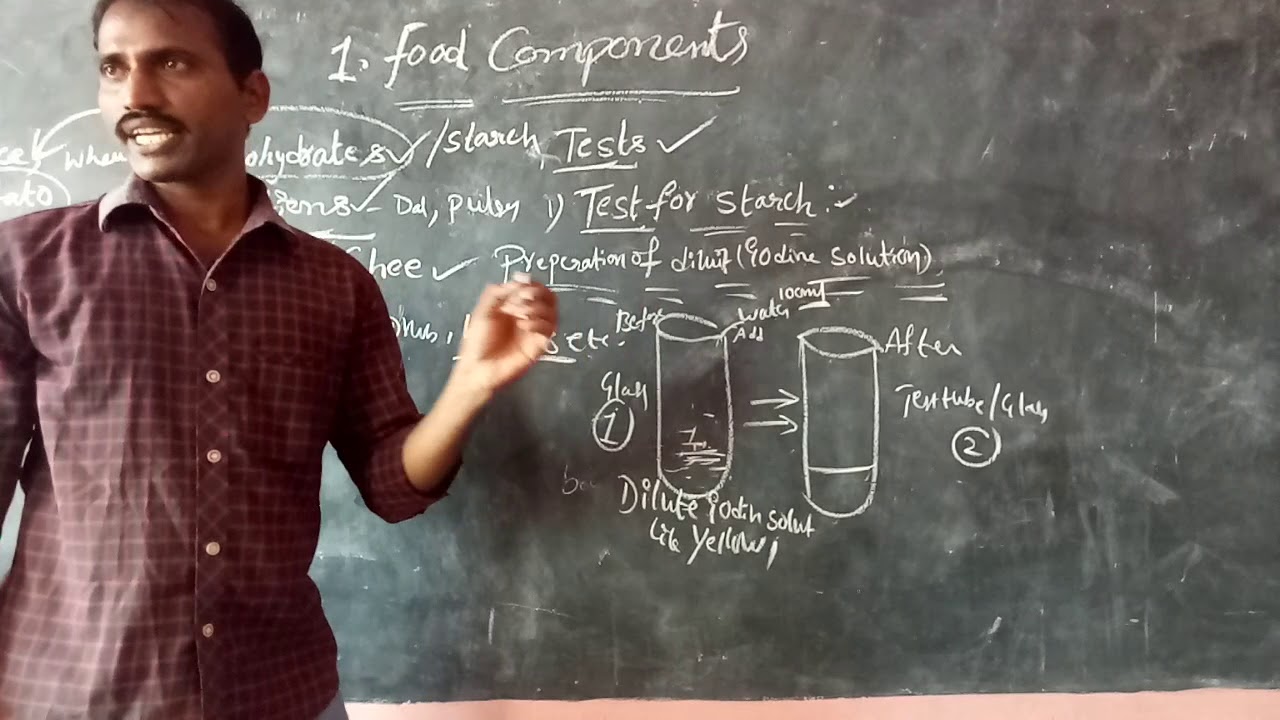 1. Food Components
ohydrates / starch, Tests
iens - Dal, pulses 1) Test for starch :-
Ghee Preperation of dilut (Iodine solution)
etc. Before Water 100ml
Add After
Glass Test tube / Glass
1 2
Dilute iodin solut
like yellow,